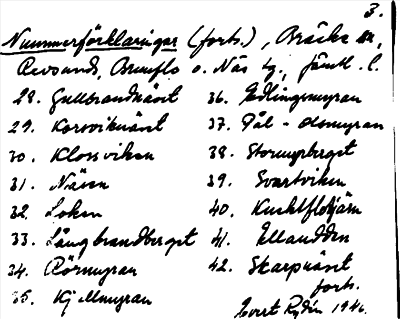 3.
Nummerförklaringar (forts.), Bräcke m,
Revsunds, Brunflo o. Näs sg., Jämtl. l.
28. Gullbrandnäset
29. Korsviknäset
30. Klossviken
31. Näsen
32. Loken
33. Långbrandberget
34. Rörmyran
35. Kjellmyran
36. Gädlingsmyran
37. Pål-Olsmyran
38. Stormyrberget
39. Svartviken
40. Knektflotjärn
41. Ellaudden
42. Skarpnäset
forts.
Evert Rydén 1946.